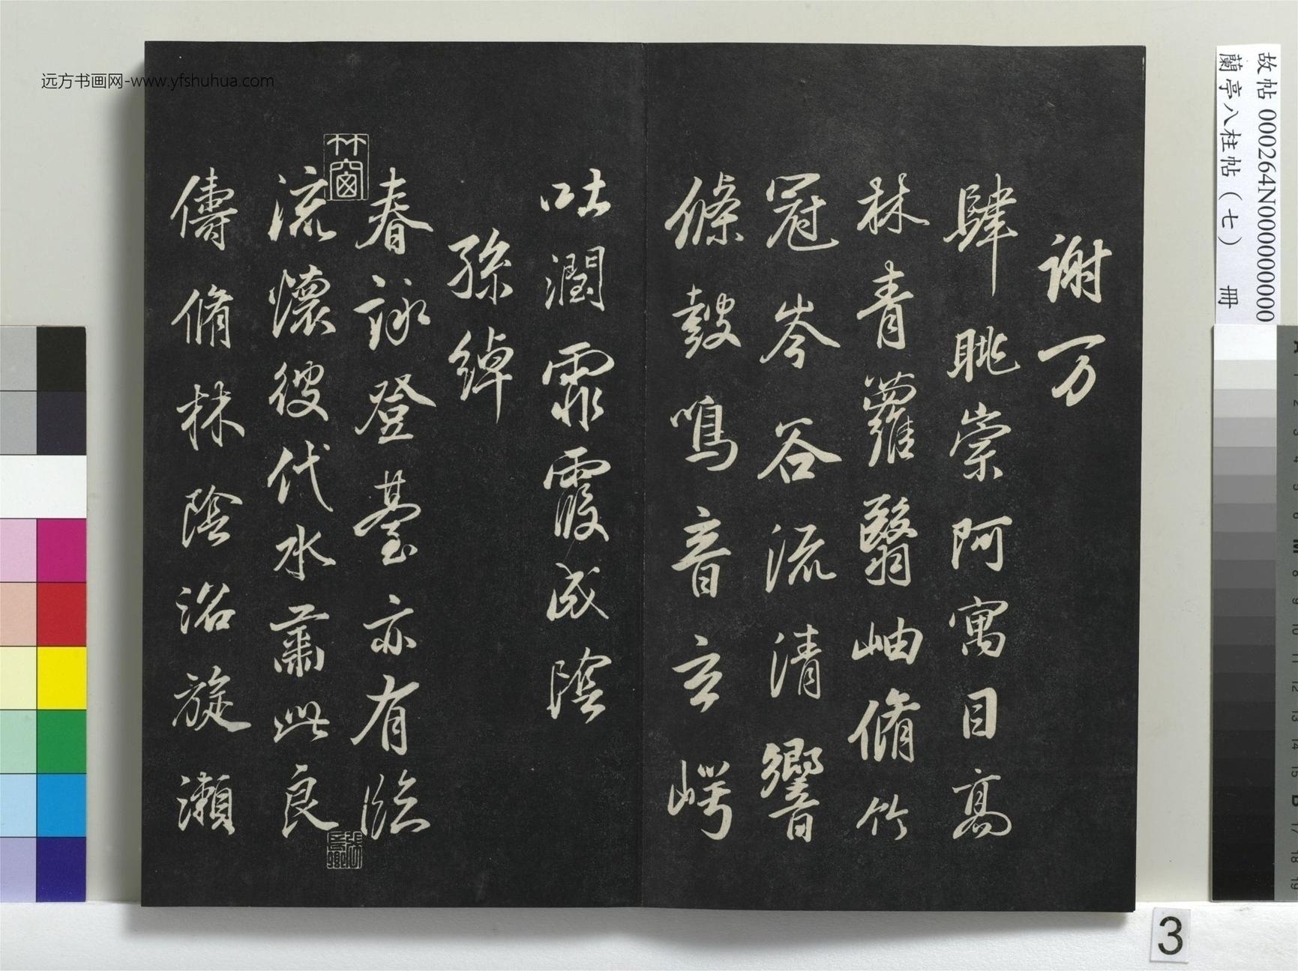 謝万
肆眺崇阿寓目高
林青蘿翳岫脩竹
冠岑谷流清響
條鼓鳴音玄崿
吐潤霏霞成陰
孫綽
春詠登臺亦有臨
流懷彼伐木肅此良
儔脩林陰沼旋瀨
竹窗
远方书画网-www.yfshuhua.com
故帖 000264N000000000
蘭亭八柱帖（七） 冊
3